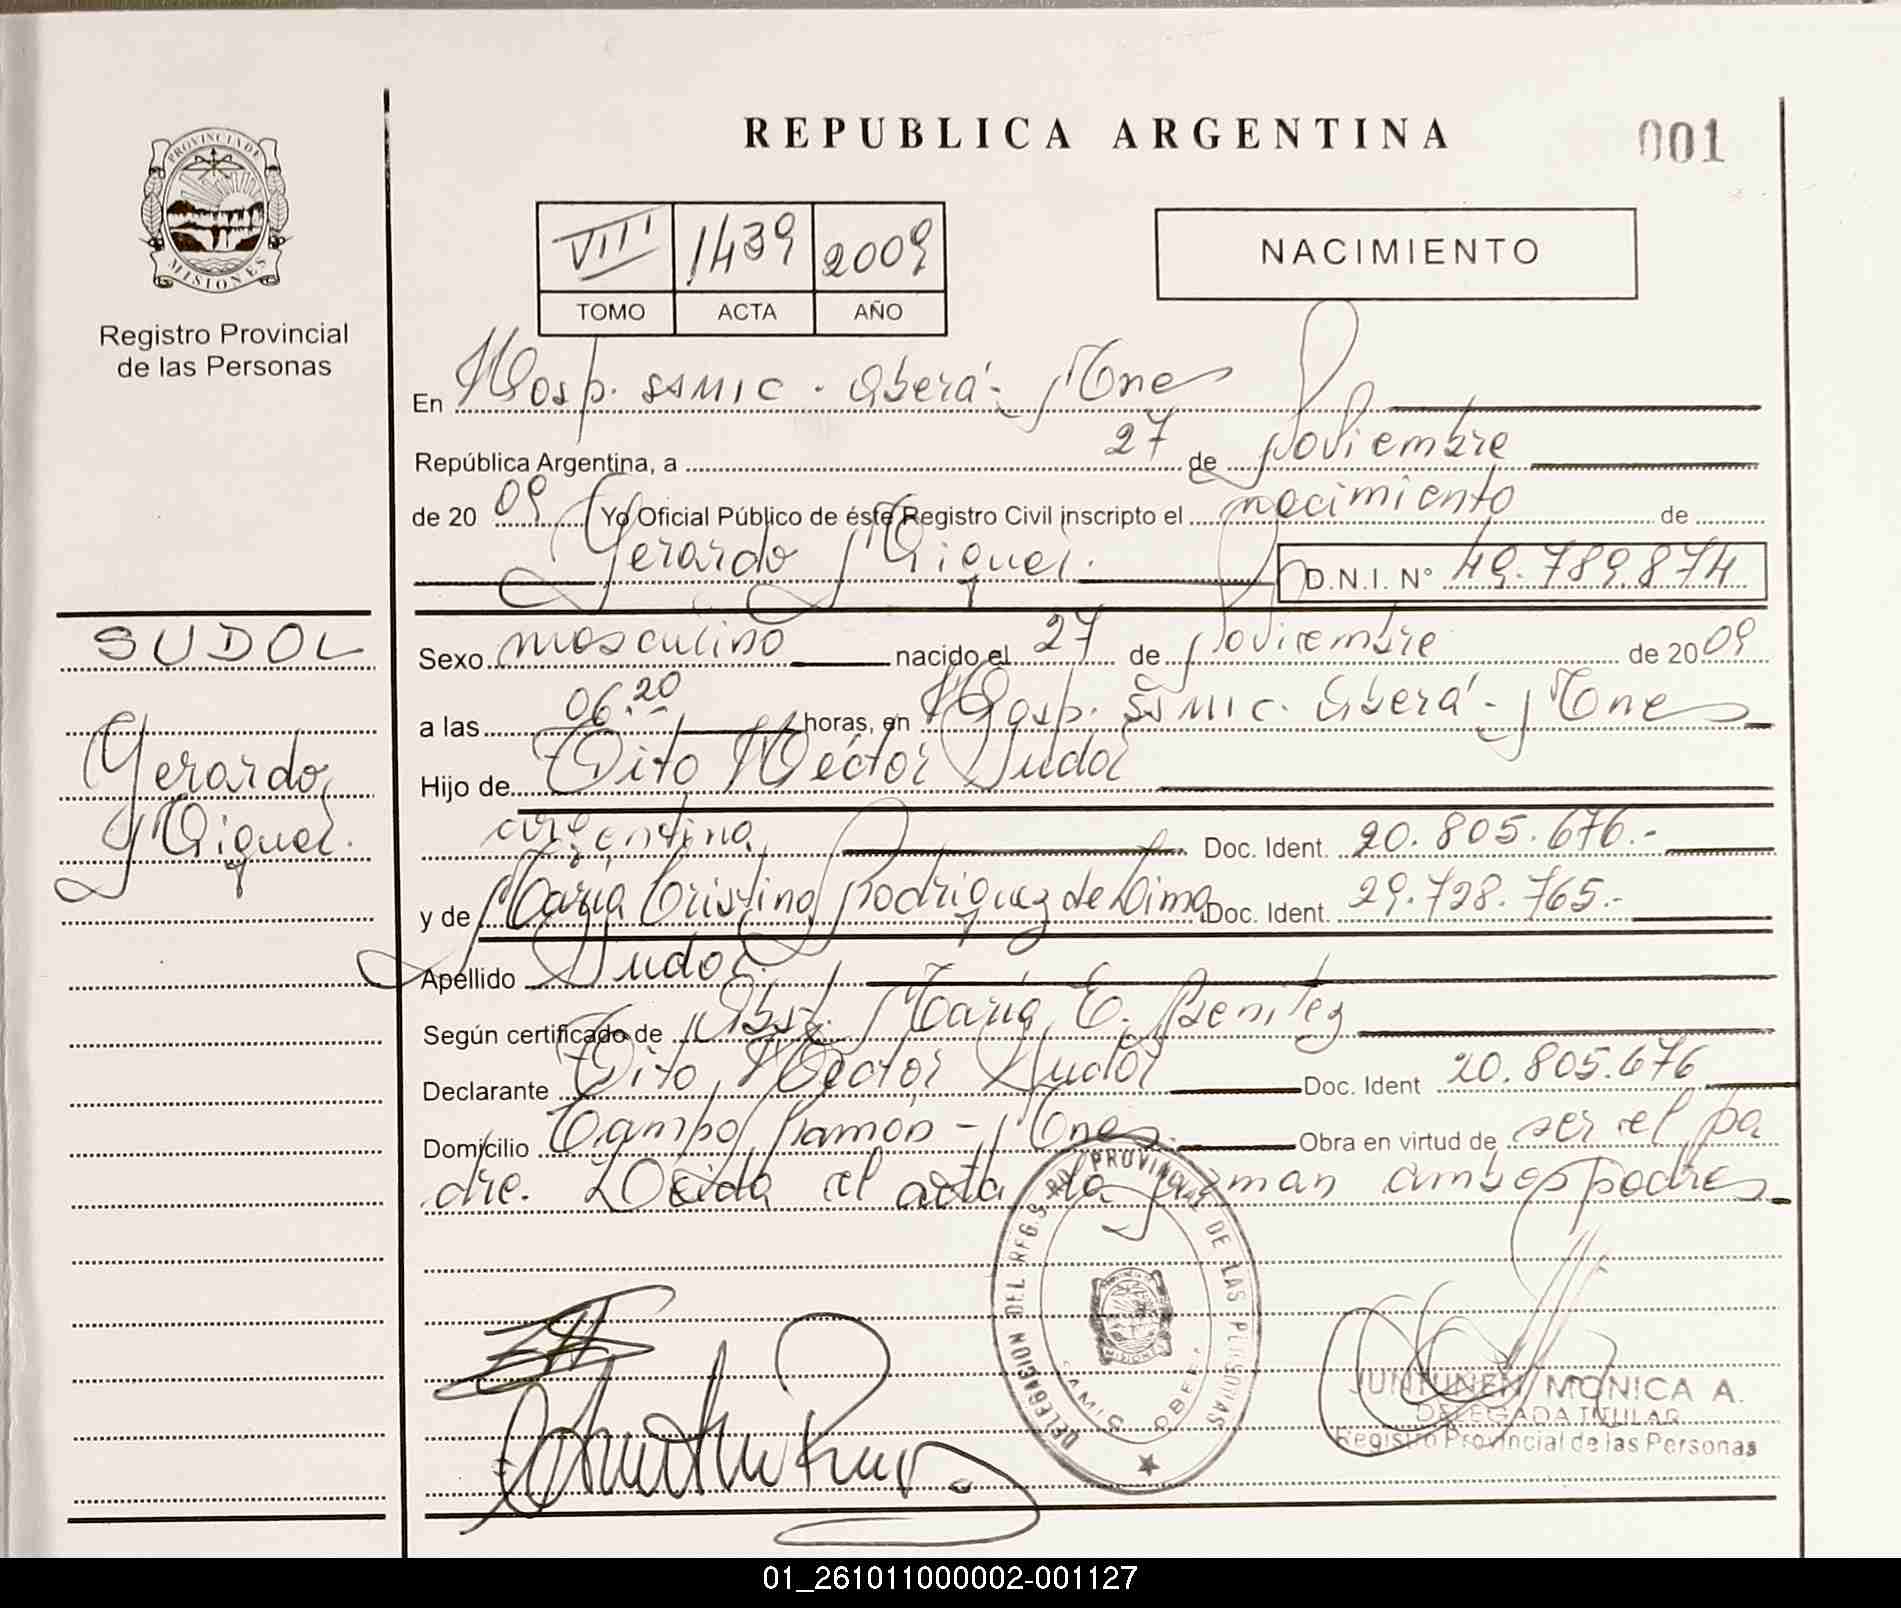 REPUBLICA ARGENTINA
001
PROVINCIA DE
MISIONES
Registro Provincial
de las Personas
VIII 1439 2009
TOMO ACTA AÑO
NACIMIENTO
En Hosp. SAMIC. Oberá - Mnes
República Argentina, a 27 de Noviembre
de 20 09 Yo Oficial Público de éste Registro Civil inscripto el nacimiento de
Gerardo Miguel. D.N.I. N° 49.789.874
SUDOL
Gerardo
Miguel.
Sexo masculino nacido el 27 de Noviembre de 20 09
a las 06.20 horas, en Hosp. SAMIC. Oberá - Mnes
Hijo de Tito Héctor Sudol
argentina Doc. Ident. 20.805.676.-
y de María Cristina Rodriguez de Lima Doc. Ident. 29.728.765.-
Apellido Sudol
Según certificado de Obst. María E. Benitez
Declarante Tito Héctor Sudol Doc. Ident 20.805.676
Domicilio Campo Ramón - Mnes. Obra en virtud de ser el pa
dre. Leída el acta la firman ambos padres
DELEGACION DEL REG. PROVINCIAL DE LAS PERSONAS
SAMIC OBERA
JUNTUNEN MONICA A.
DELEGADA TITULAR
Registro Provincial de las Personas
01_261011000002-001127